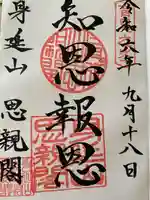 令和六年 九月十八日
知恩報恩
身延山 思親閣
思親閣